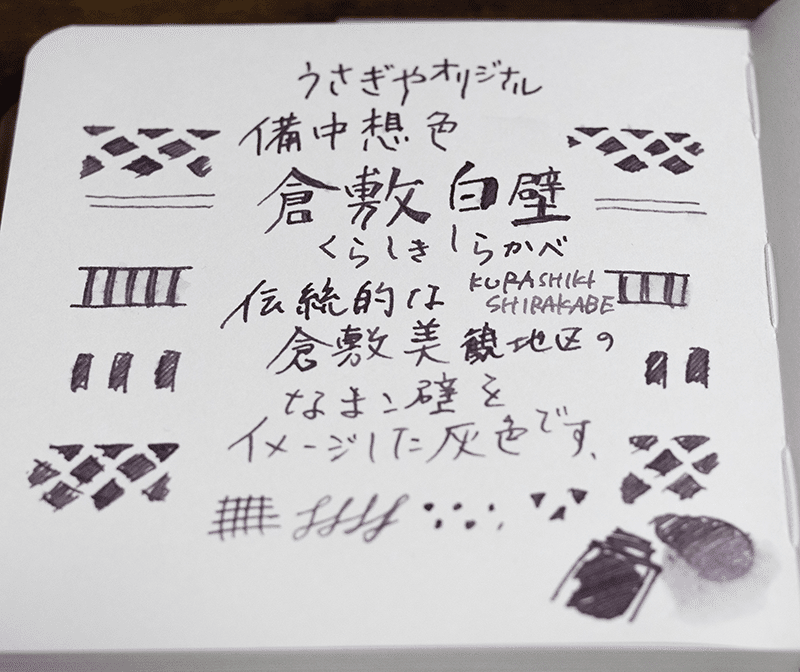 うさぎやオリジナル
備中想色
倉敷白壁
くらしきしらかべ
KURASHIKI
SHIRAKABE
伝統的な
倉敷美観地区の
なまこ壁を
イメージした灰色です、